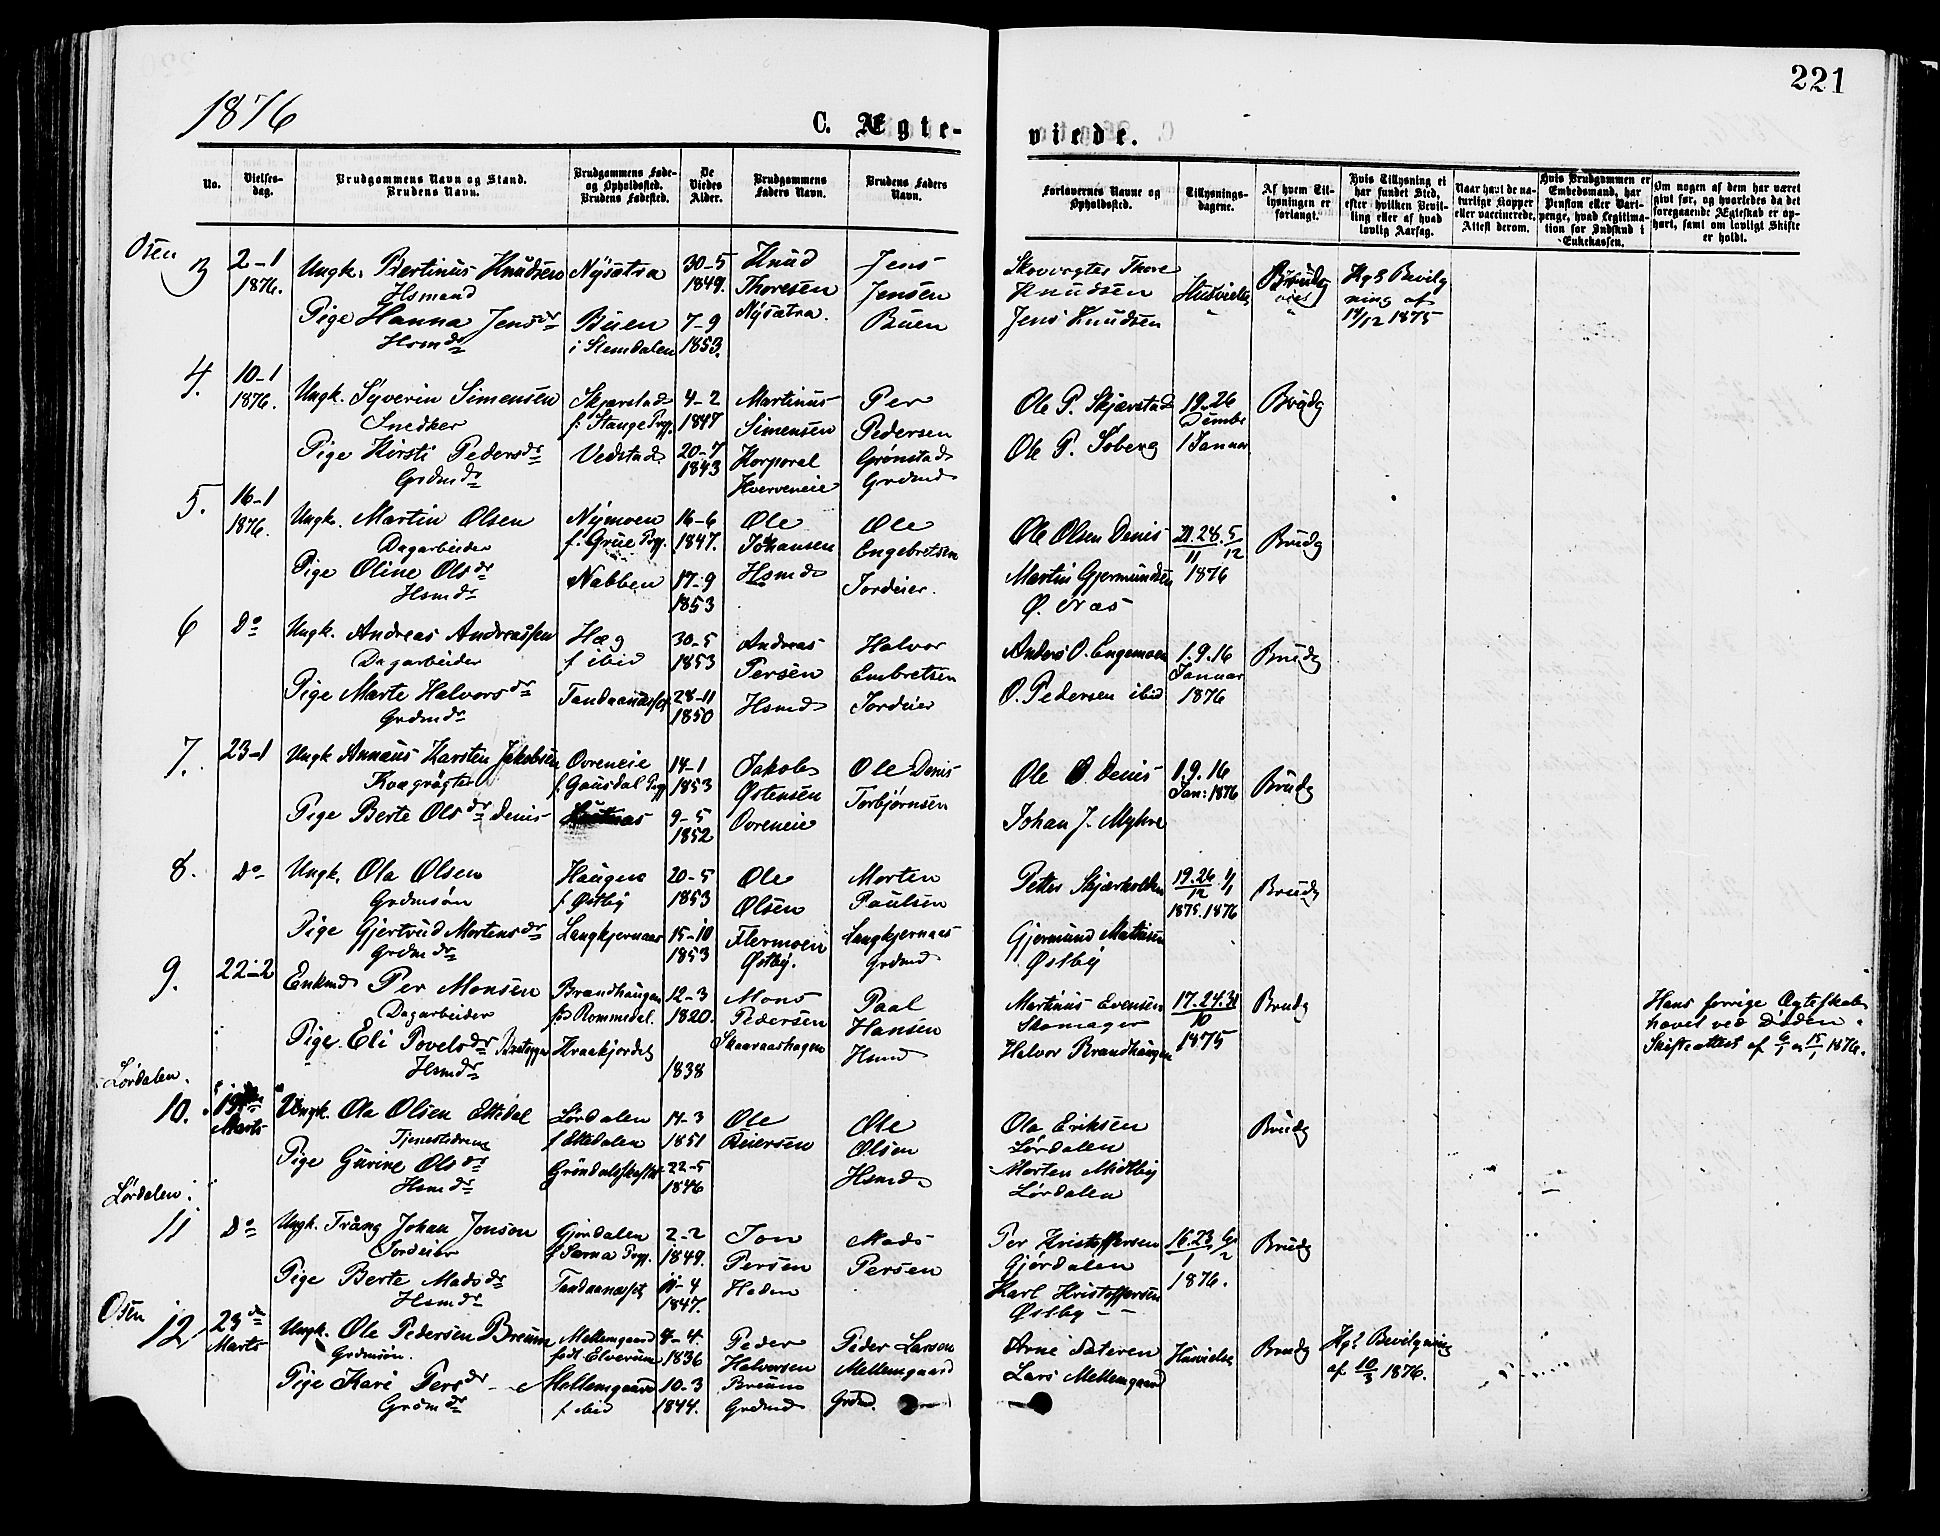 221
1876
C. Ægteviede.
No.
Vielsesdag.
Brudgommens Navn og Stand.
Brudens Navn.
Brudgommens Føde- og Opholdssted.
Brudens Fødested.
De Viedes Alder.
Brudgommens Faders Navn.
Brudens Faders Navn.
Forlovernes Navne og Opholdssted.
Tillysningsdagene.
Af hvem Tillysningen er forlangt.
Hvis Tillysning ei har fundet Sted, efter hvilken Bevilling eller af hvad lovlig Aarsag.
Naar havt de naturlige Kopper eller vaccinerede. Attest derom.
Hvis Brudgommen er Embedsmand, har Pension eller Vartpenge, hvad Legitimation for Indskud i Enkekassen.
Om nogen af dem har været gift før, og hvorledes da det foregaaende Ægteskab er ophørt, samt om lovligt Skifte er holdt.
Osen
3
2-1
1876.
Ungk. Bertinus Knudsen
Hsmand
Pige Hanna Jensdr
Hsmdr
Nysætra
Buen
i Slemdalen
30-5
1849.
7-9
1853.
Knud
Thoresen
Nysætra.
Jens
Jensen
Buen
Skovvogter Thore
Knudsen
Jens Knudsen
Husvielse
Brudg
Kgl Bevilg
ning af
14/12 1875
4.
10-1
1876.
Ungk. Syverin Simensen
Snedker
Pige Kirsti Pedersdr
Grdmdr
Skjærstad
f. Stange Prg.
Vedstad
4-2
1847
20-7
1843
Martinus
Simensen
Korporal
Kverveneie
Per
Pedersen
Grønstad
Grdmd
Ole P. Skjærstad
Ole P. Søberg
19. 26
Dcembr
1 Januar
Brudg
5.
16-1
1876.
Ungk. Martin Olsen
Dagarbeider
Pige Oline Olsdr
Hsmdr
Nymoen
f. Grue Prg.
Nabben
16-6
1847.
17-9
1853
Ole
Johansen
Hsmd
Ole
Engebretsen
Jordeier.
Ole Olsen Denis
Martin Gjermundsen
Ø. Næs
21. 28. 5
11 12
1876
Brudg
6
Do
Ungk. Andreas Andreassen
Dagarbeider
Pige Marte Halvorsdr
Grdmdr
Hæg
f. ibid
Tandaanæset
30-5
1853
28-11
1850
Andreas
Persen
Hsmd
Halvor
Embretsen
Jordeier
Anders O. Engemoen
O. Pedersen ibid
1. 9. 16
Januar
1876
Brudg
7.
23-1
Ungk Annæus Karsten Jakobsen
Kvægrøgter
Pige Berte Olsdr Denis
Ovreneie
f. Gausdal Prg
14-1
1853
9-5
1852
Jakob
Østensen
Ovreneie
Ole Denis
Torbjørnsen
Ole O. Denis
Johan J. Myhre
1. 9. 16
Jan: 1876
Brudg
8.
Do
Ungk. Ola Olsen
Grdmsøn
Pige Gjertrud Mortensdr
Grdmdr
Haugen
f. Østby
Langkjernæs
20-5
1853
15-10
1853
Ole
Olsen
Flermoen
Østby.
Morten
Paulsen
Langkjernæs
Grdmd
Petter Skjærholden
Gjermund Matisen
Østby
19. 26 1/1
12
1875. 1876
Brudg
9.
22-2
Enkmd Per Monsen
Dagarbeider
Pige Eli Povelsdr
Hsmdr
Brandhaugen
fr Rommedal.
Kraakjordet
12-3
1820.
1838
Mons
Pedersen
Skaaraashagen
Paal
Hansen
Hsmd
Martinus Evensen
Skomager
Halvor Brandhaugen
17. 24. 31
10
1875
Brudg
Hans forrige Ægteskab
hævet ved Døden.
Skifteattest af 6/1 & 15/1 1876.
Lørdalen.
10.
19de
Marts
Ungk. Ola Olsen Ettedal
Tjenestedreng
Pige Gurine Olsdr
Hsmdr
Lørdalen
f. Ettedalen
14-3
1851
22-5
1846
Ole
Reiersen
Ole
Olsen
Hsmd
Ola Eriksen
Lørdalen
Morten Midtby
Lørdalen
Brudg
Lørdalen.
11
Do
Ungk. Trang Johan Jonson
Jordeier
Pige Berte Madsdr
Hsmdr
Gjørdalen
f. Særna Prg.
Tandaanæset
2-2
1849.
11-4
1847.
Jon
Persen
Heden
Mads
Persen
Per Kristoffersen
Gjørdalen
Karl Kristoffersen
Østby
16. 23 6/2
1
1876.
Brudg
Osen
12
23de
Marts
Ungk. Ole Pedersen Breum
Grdmsøn.
Pige Kari Persdr
Grdmdr
Mellemgaard
født Elverum
Mellemgaard
f. ibid
4-4
1836
10-3
1844.
Peder
Halvorsen
Breum
Grdmd
Peder Larsen
Mellemgaard
Grdmd.
Arne Sæteren
Lars Mellemgaard
Husvielse
Brudg
Kgl Bevilgning
af 10/3 1876.